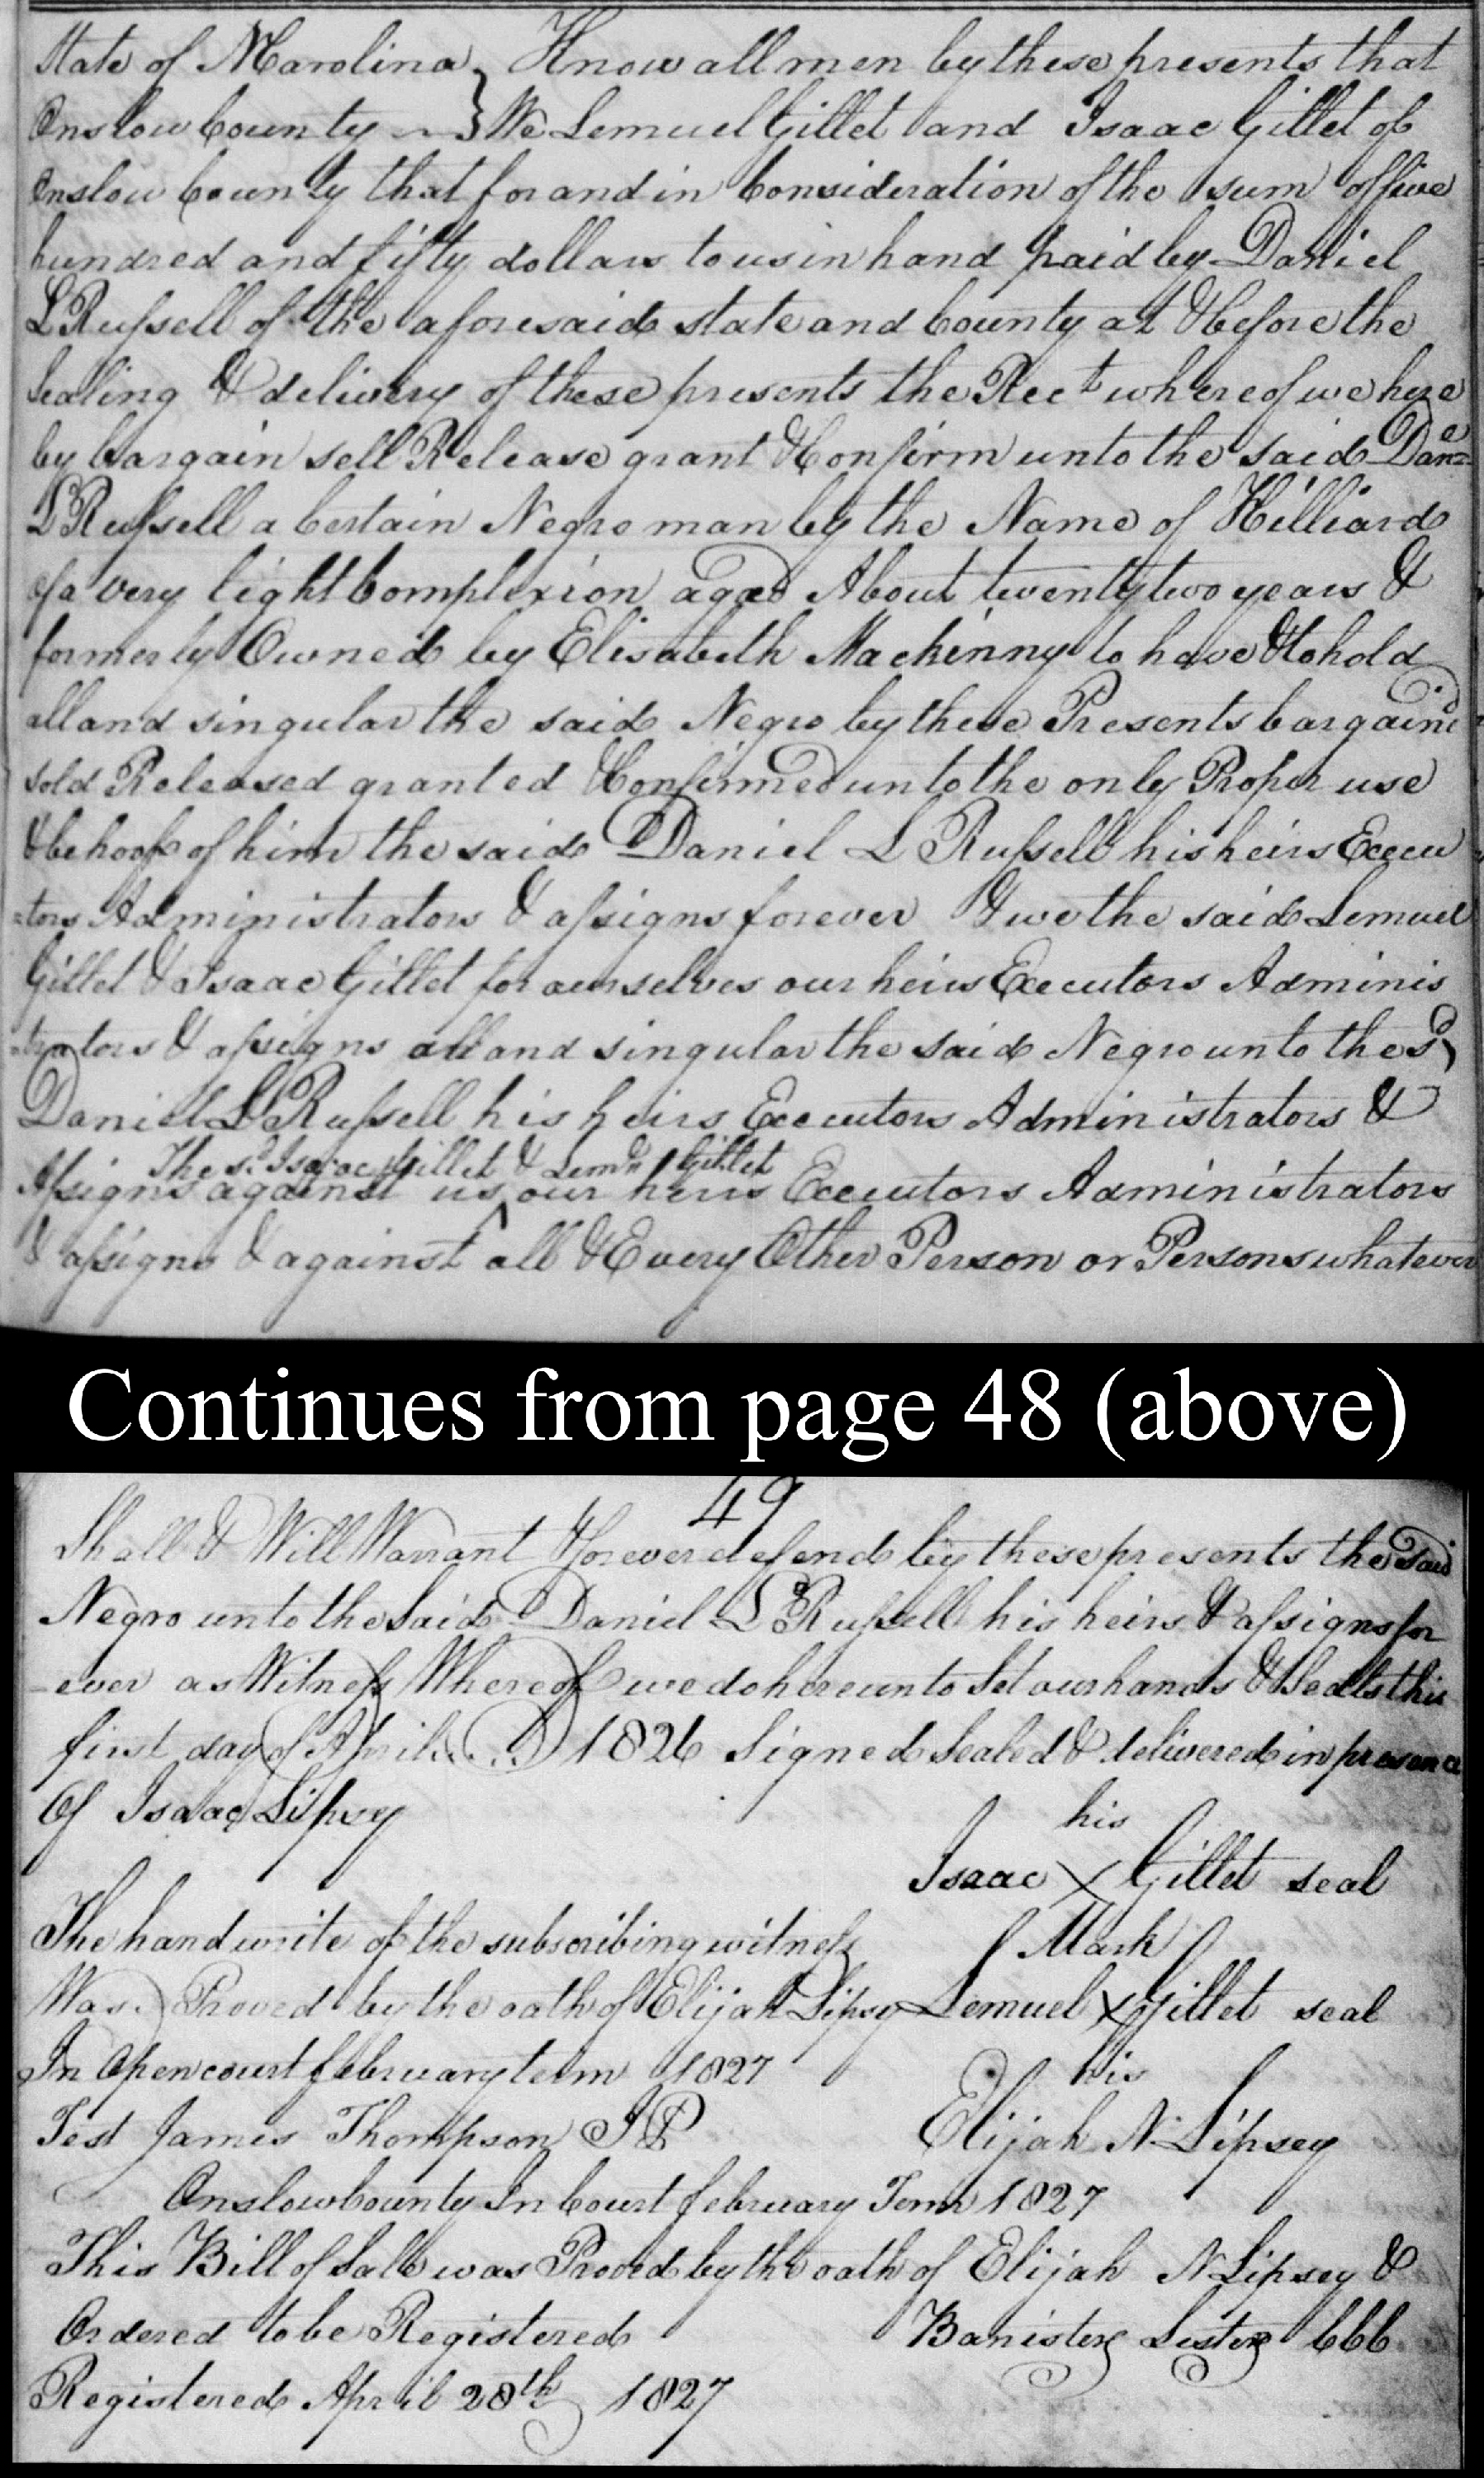 State of N Carolina } Know all men by these presents that
Onslow County } We Lemuel Gillet and Isaac Gillet of
Onslow County that for and in Consideration of the sum of five
hundred and fifty dollars to us in hand paid by Daniel
L Russell of the aforesaid state and County at & before the
Sealing & delivery of these presents the Rect whereof we here
by bargain sell Release grant & Confirm unto the said Dane=
L Russell a Certain Negro man by the Name of Hilliard
of a very light Complexion aged About twenty two years &
formerly Owned by Elisabeth Mackinny to have & to hold
all and singular the said Negro by these Presents bargaind
sold Released granted & Confirmed unto the only Proper use
& behoof of him the said Daniel L Russell his heirs Execu
=tors Administrators & assigns forever & we the said Lemuel
Gillet & Isaac Gillet for ourselves our heirs Executors Adminis
=trators & assigns all and singular the said Negro unto the sd
Daniel L Russell his heirs Executors Administrators &
The sd Isaac Gillet & Leml Gillet
Assigns against us ^ our heirs Executors Administrators
& assigns & against all & Every Other Person or Persons whatever
Continues from page 48 (above)
49
Shall & Will Warrant & forever defend by these presents the Said
Negro unto the Said Daniel L Russell his heirs & assigns for
-ever as Witness Whereof we do hereunto Set our hands & Seals this
first day of April A.D 1826 Signed Sealed & delivered in presence
Of Isaac Lipsey
his
Isaac X Gillet seal
The hand write of the subscribing witness Mark
Was Proved by the oath of Elijah Lipsey Lemuel X Gillet seal
In Open court february term 1827 his
Test James Thompson JP Elijah N Lipsey
Onslow County In Court february Term 1827
This Bill of Sale was Proved by the oath of Elijah N Lipsey &
Ordered to be Registered Banister Lester CCC
Registered April 28th 1827